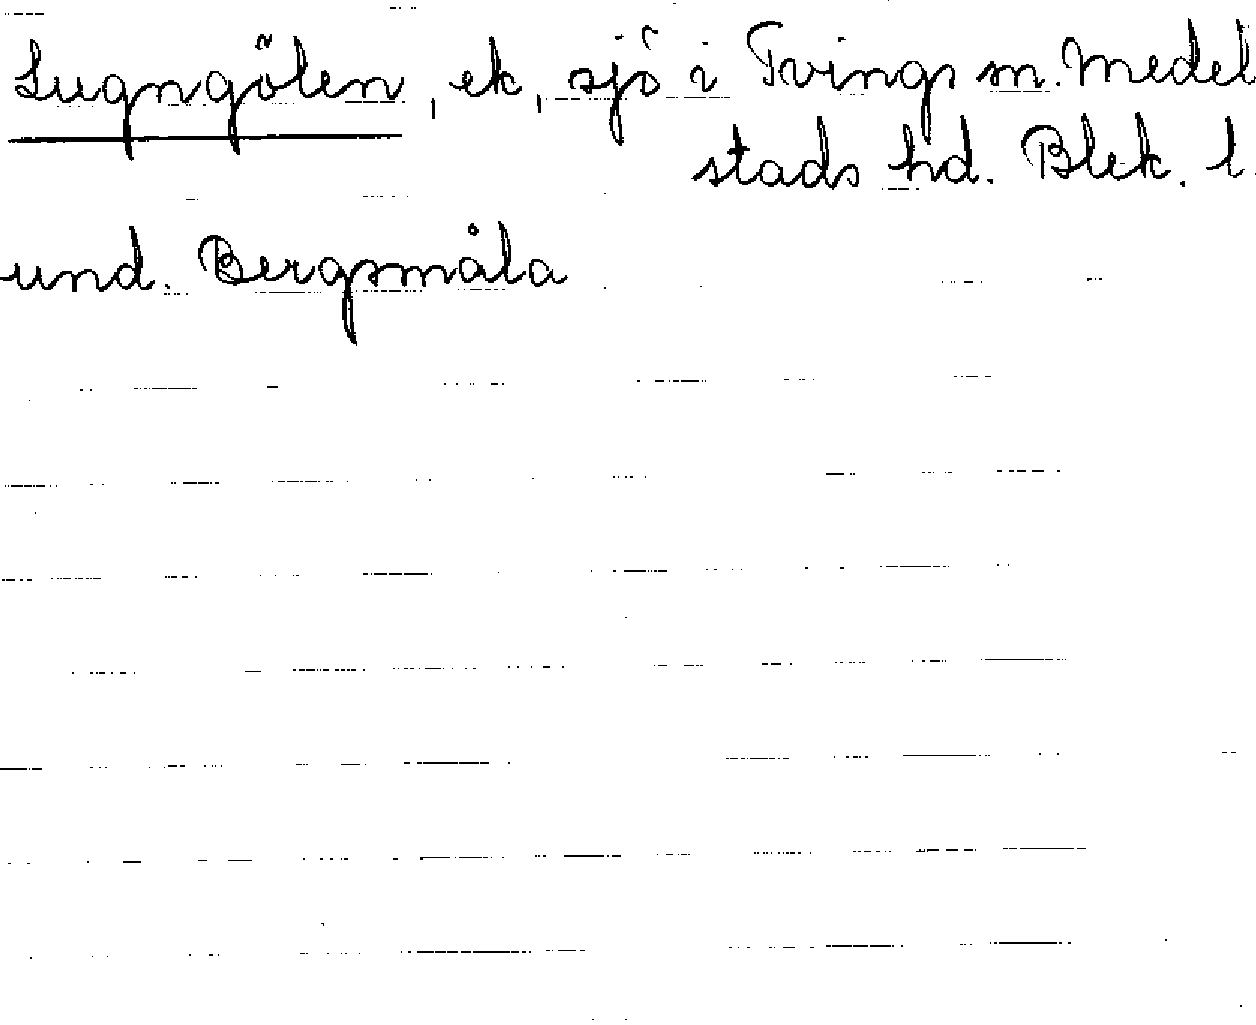 Lugngölen, ek, sjö i Tvings sn. Medel
stads hd. Blek. l.
und. Bergsmåla